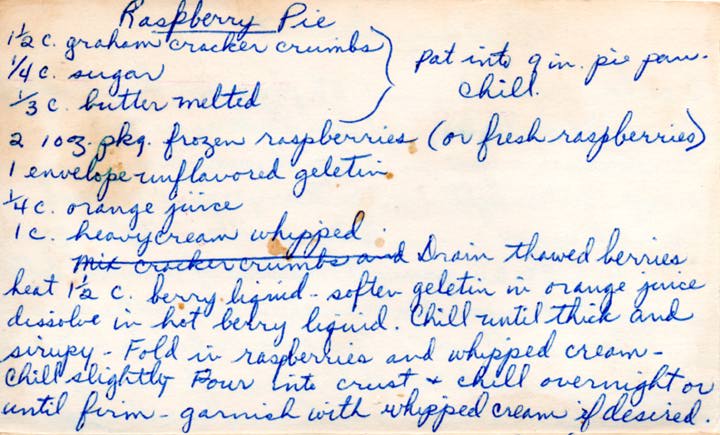 Raspberry Pie
1½ c. graham cracker crumbs
¼ c. sugar
⅓ c. butter melted
pat into 9 in. pie pan.
chill.
2 10 oz. pkg. frozen raspberries (or fresh raspberries)
1 envelope unflavored geletin
¼ c. orange juice
1 c. heavy cream whipped.
Mix cracker crumbs and Drain thawed berries
heat 1½ c. berry liquid - soften geletin in orange juice
dissolve in hot berry liquid. Chill until thick and
sirupy - Fold in raspberries and whipped cream -
Chill slightly Pour into crust + chill overnight or
until firm - garnish with whipped cream if desired.